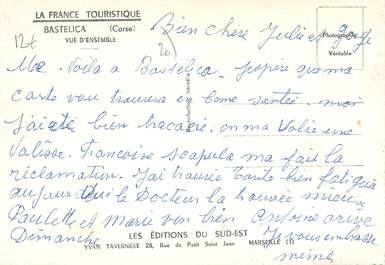 LA FRANCE TOURISTIQUE
BASTELICA (Corse)
VUE D'ENSEMBLE
20
Photographie
Véritable
Bien chere Julie et
Me Voila a Bastelica J'espère que ma
carte vou trouvera en bone santée moi
J'ai été bien tracacée on ma Volée une
Valise. Francoise Scapula ma fait la
réclamation. J'ai trouvée bien fatiguée
aujourd'hui le Docteur la trouvée mieux
Paulette et Marie von bien Antoine arive
Dimanche Je vous embrasse
même
LES ÉDITIONS DU SUD-EST
YVAN TAVERNESE 28, Rue du Petit Saint Jean MARSEILLE (1)